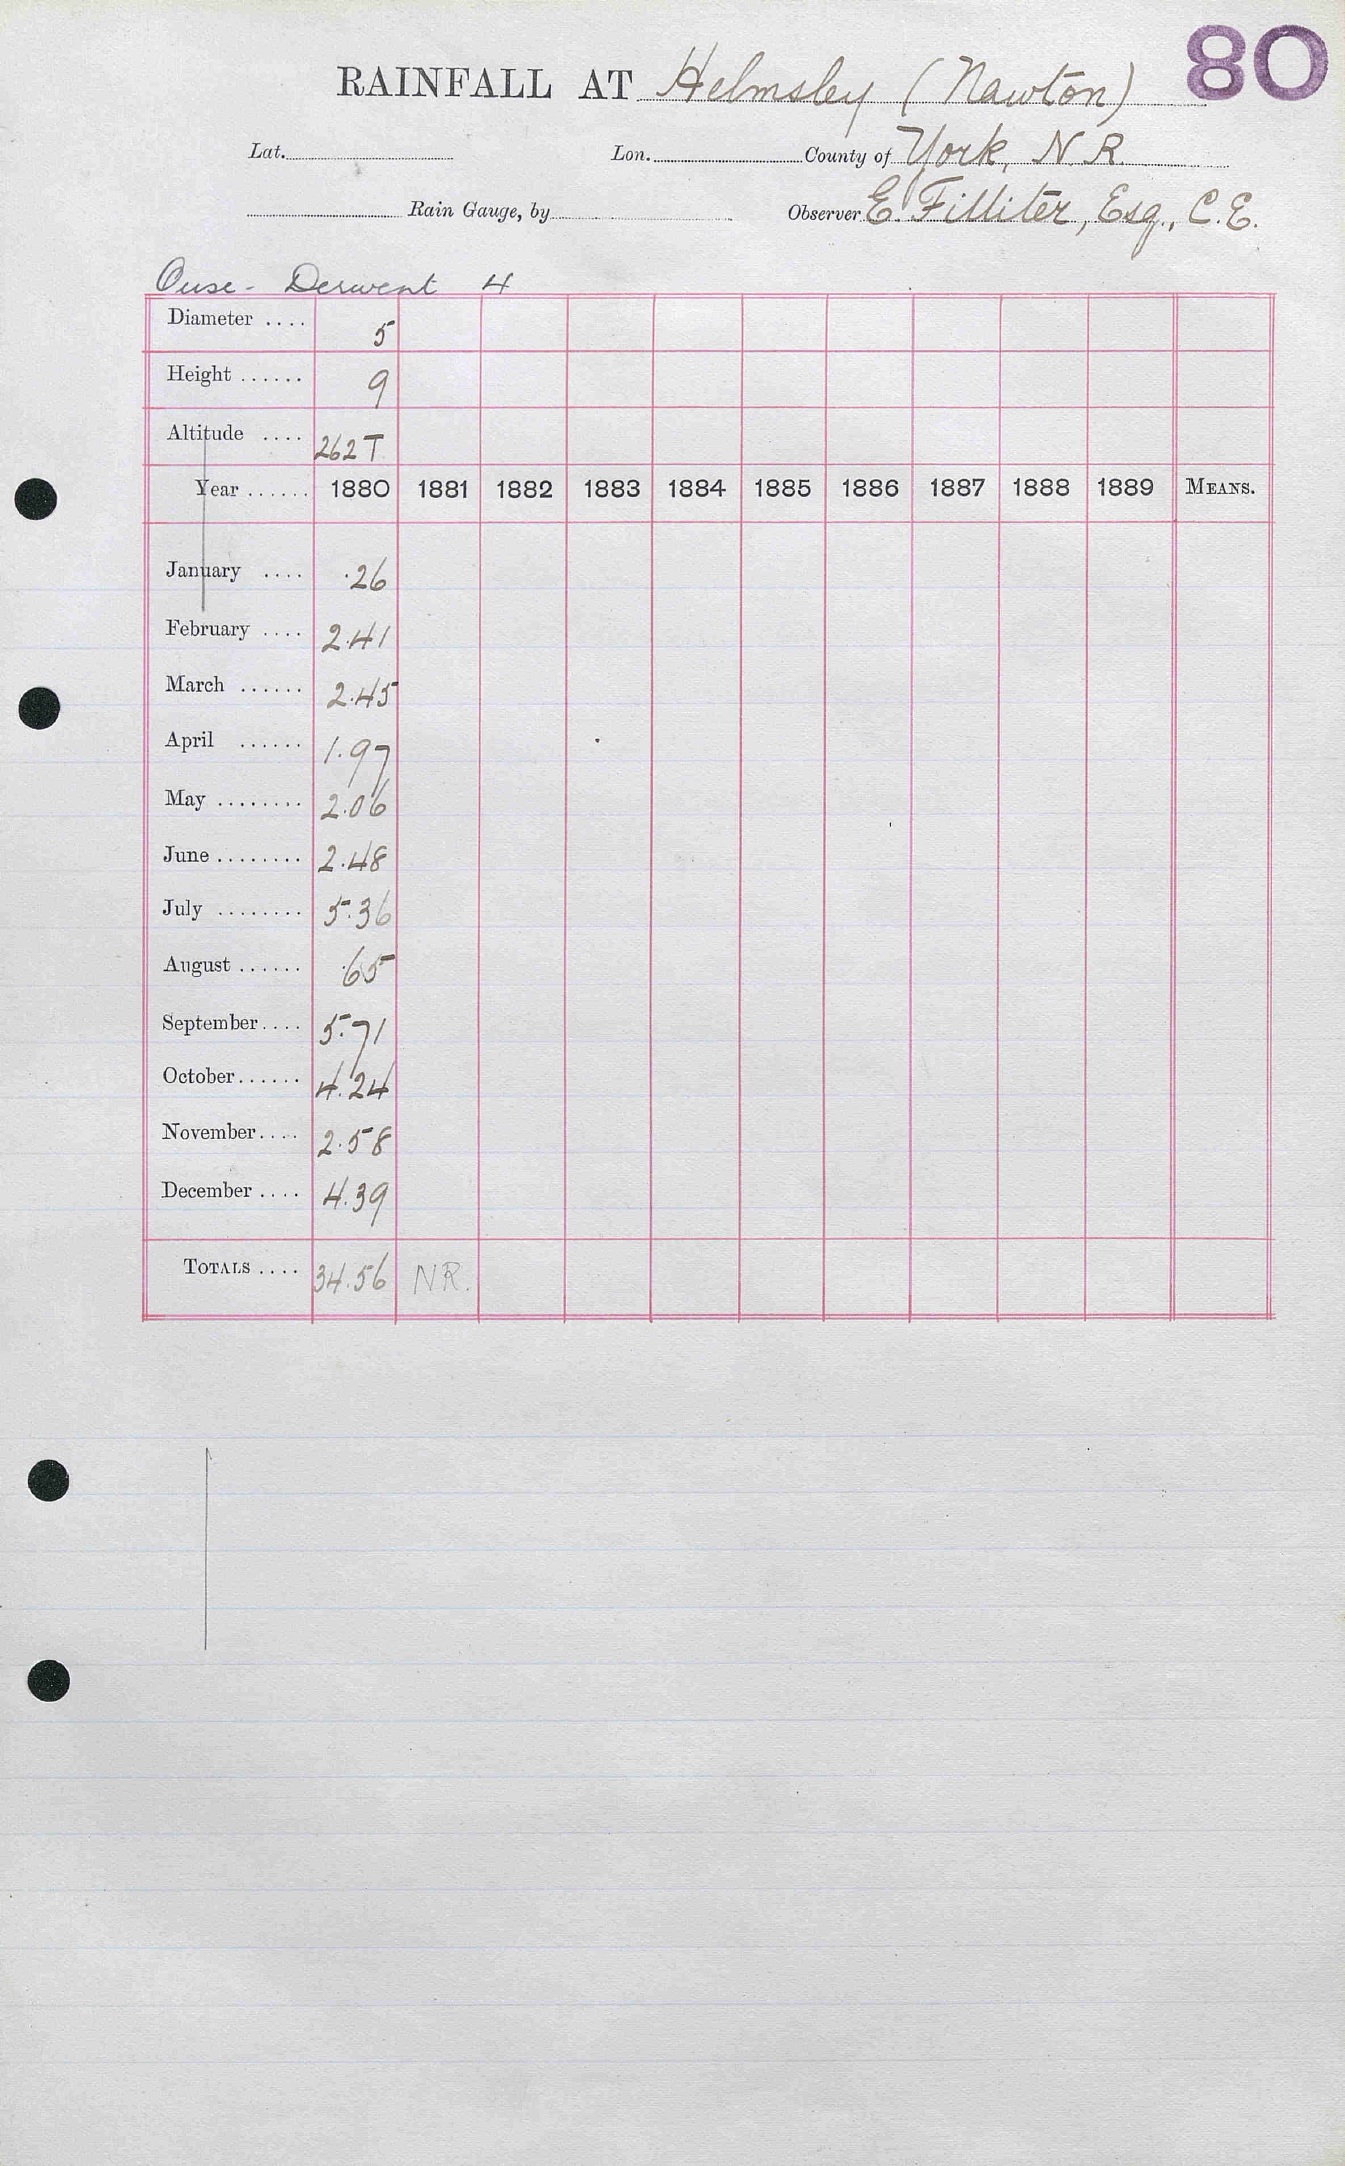 80
RAINFALL AT Helmsley (Nawton)
Lat. Lon. County of York, N.R.
Rain Gauge, by Observer E. Filliter, Esq., C.E.
Ouse - Derwent 4
Diameter .... 5
Height ...... 9
Altitude .... 262 T
Year ...... 1880 1881 1882 1883 1884 1885 1886 1887 1888 1889 MEANS.
January .... .26
February .... 2.41
March ...... 2.45
April ...... 1.97
May ........ 2.06
June ........ 2.48
July ........ 5.36
August ...... .65
September .... 5.71
October ...... 4.24
November .... 2.58
December .... 4.39
TOTALS .... 34.56 NR.